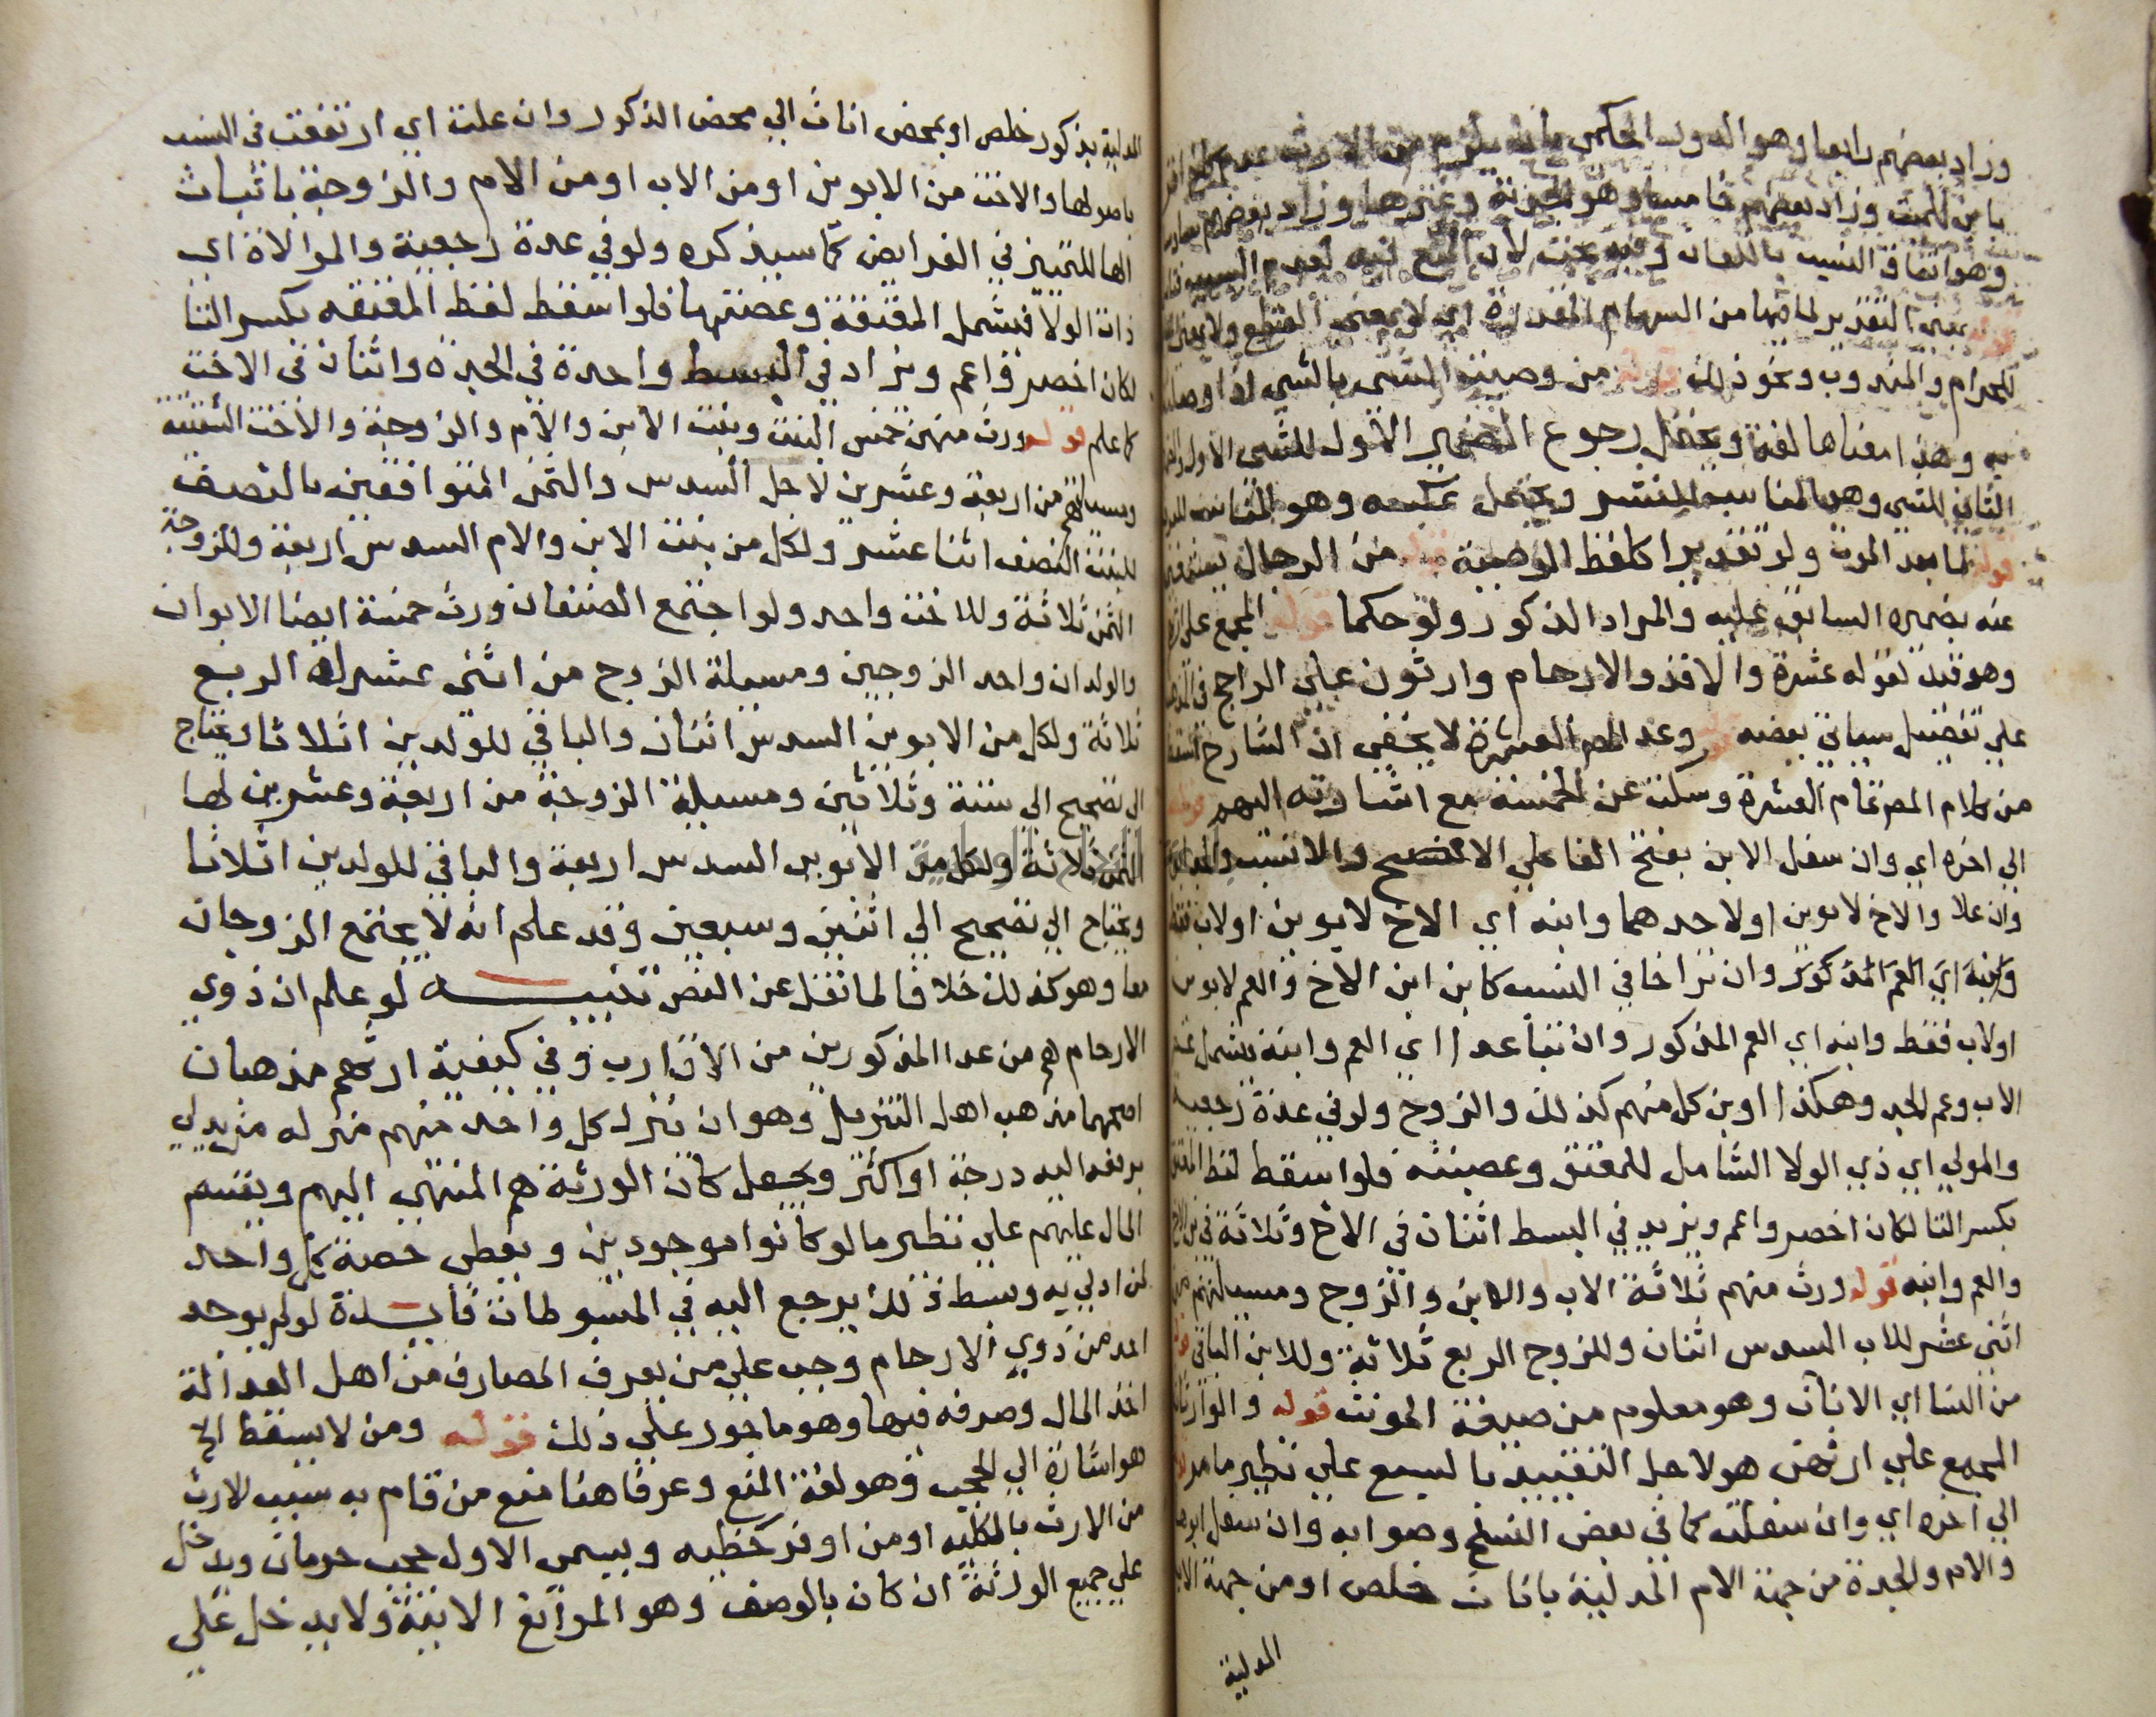 وزاد بعضهم رابعا وهو الدور الحكمي بان يلزم من الارث عدمه
بابن للميت وزاد بعضهم خامسا وهو النبوة وغيرها وزاد بعضهم
وهو انتفا النسب باللعان وفيه بحث لان المنع فيه لعدم السبب
بمعنى التقدير لما فيها من السهام المقدرة اي لا بمعنى القطع ولا بمعنى
للحرام والمندوب ونحو ذلك قوله من وصيت الشي بالشي اذا وصلته
به وهذا معناها لغة ويحتمل رجوع الضمير الاول للشي الاول
الثاني للشي وهو المناسب للنشر ويحتمل عكسه وهو المناسب
قوله لما بعد الموت ولو تقديرا كلفظ الوصية قوله من الرجال يستغنى
عنه بضميره السابق عليه والمراد الذكور ولو حكما قوله المجمع على
وهو قيد لقوله عشرة والا فذو الارحام وارثون على الراجح
على تفصيل سياتي بعضه قوله وعد المص العشرة لا يخفى ان الشارح
من كلام المص تمام العشرة وسكت عن الخمسة مع اشارته اليهم قوله
الي اخره اي وان سفل الابن بفتح الفا على الافصح والانسب
وان علا والاخ لابوين اولاحدهما وابنه اي الاخ لابوين اولاب فقط
وابنه اي العم المذكور وان تراخا في النسب كابن ابن الاخ والعم لابوين
اولاب فقط وابنه اي العم المذكور وان تباعدا اي العم وابنه يشمل عم
الاب وعم الجد وهكذا اوبن كل منهم كذلك والزوج ولو في عدة رجعية
والمولي اي ذي الولا الشامل للمعتق وعصبته فلو اسقط لفظ المعتق
بكسر التا لكان اخصر واعم ويزيد في البسط اثنان في الاخ وثلاثة في بن الاخ
والعم وابنه قوله ورث منهم ثلاثة الاب والابن والزوج ومسيالتهم من
اثنى عشر للاب السدس اثنان وللزوج الربع ثلاثة وللابن الباقي قوله
من النسا اي الاناث وهو معلوم من صيغة المونث قوله والوارثات
المجمع علي ارثهن هو لاجل التقييد بالسبع علي نظير ما مر قوله
الي اخره اي وان سفلت كما في بعض النسخ وصوابه وان سفل ابوها
والام والجدة من جهة الام المدلية باناث خلص اومن جهة الاب
المدلية
المدلية بذكور خلص اوبمحض اناث الي محض الذكور وان علت اي ارتفعت في النسب
باصولها والاخت من الابوين اومن الاب اومن الام والزوجة باثبات
الها للتمييز في الفرايض كما سيذكره ولو في عدة رجعية والموالاة اي
ذات الولا فيشمل المعتقة وعصبتها فلو اسقط لفظ المعتقه بكسر التا
لكان اخصر واعم ويزاد في البسط واحدة في الجدة واثنان في الاخت
كما علم قوله ورث منهن خمس البنت وبنت الابن والام والزوجة والاخت الشقيقة
ومسيالتهم من اربعة وعشرين لاجل السدس والثمن المتوافقين بالنصف
للبنت النصف اثنا عشر ولكل من بنت الابن والام السدس اربعة وللزوجة
الثمن ثلاثة وللاخت واحد ولو اجتمع الصنفان ورث خمسة ايضا الابوان
والولدان واحد الزوجين ومسيلة الزوج من اثنى عشر له الربع
ثلاثة ولكل من الابوين السدس اثنان والباقي للولدين اثلاثا ويحتاج
الي تصحيح الى ستة وثلاثين ومسيلة الزوجة من اربعة وعشرين لها
الثمن ثلاثة ولكل من الابوين السدس اربعة والباقي للولدين اثلاثا
ويحتاج الي تصحيح الي اثنين وسبعين وقد علم انه لا يجتمع الزوجان
معا وهو كذلك خلافا لما نقل عن النص تنبيه لو علم ان ذوي
الارحام هم من عدا المذكورين من الاقارب وفي كيفية ارثهم مذهبان
اصحهما مذهب اهل التنزيل وهو ان ننزل كل واحد منهم منزله من يدلي
برفعه اليه درجة اواكثر ويجعل كان الورثة هم المنتهي اليهم ويقسم
المال عليهم علي نظير مالو كانوا موجودين ويعطى حصة كل واحد
لمن ادلي به وبسط ذلك يرجع اليه في المبسوطات فايدة لو لم يوجد
احد من ذوي الارحام وجب علي من يعرف المصارف من اهل العدالة
اخذ المال وصرفه فيها وهو ماجور علي ذلك قوله ومن لا يسقط الخ
هو اشارة الي الحجب وهو لغة المنع وعرفا هنا منع من قام به سبب الارث
من الارث بالكليه اومن اوفر حظيه ويسمى الاول حجب حرمان ويدخل
علي جميع الورثة ان كان بالوصف وهو الموانع الاتية ولا يدخل علي